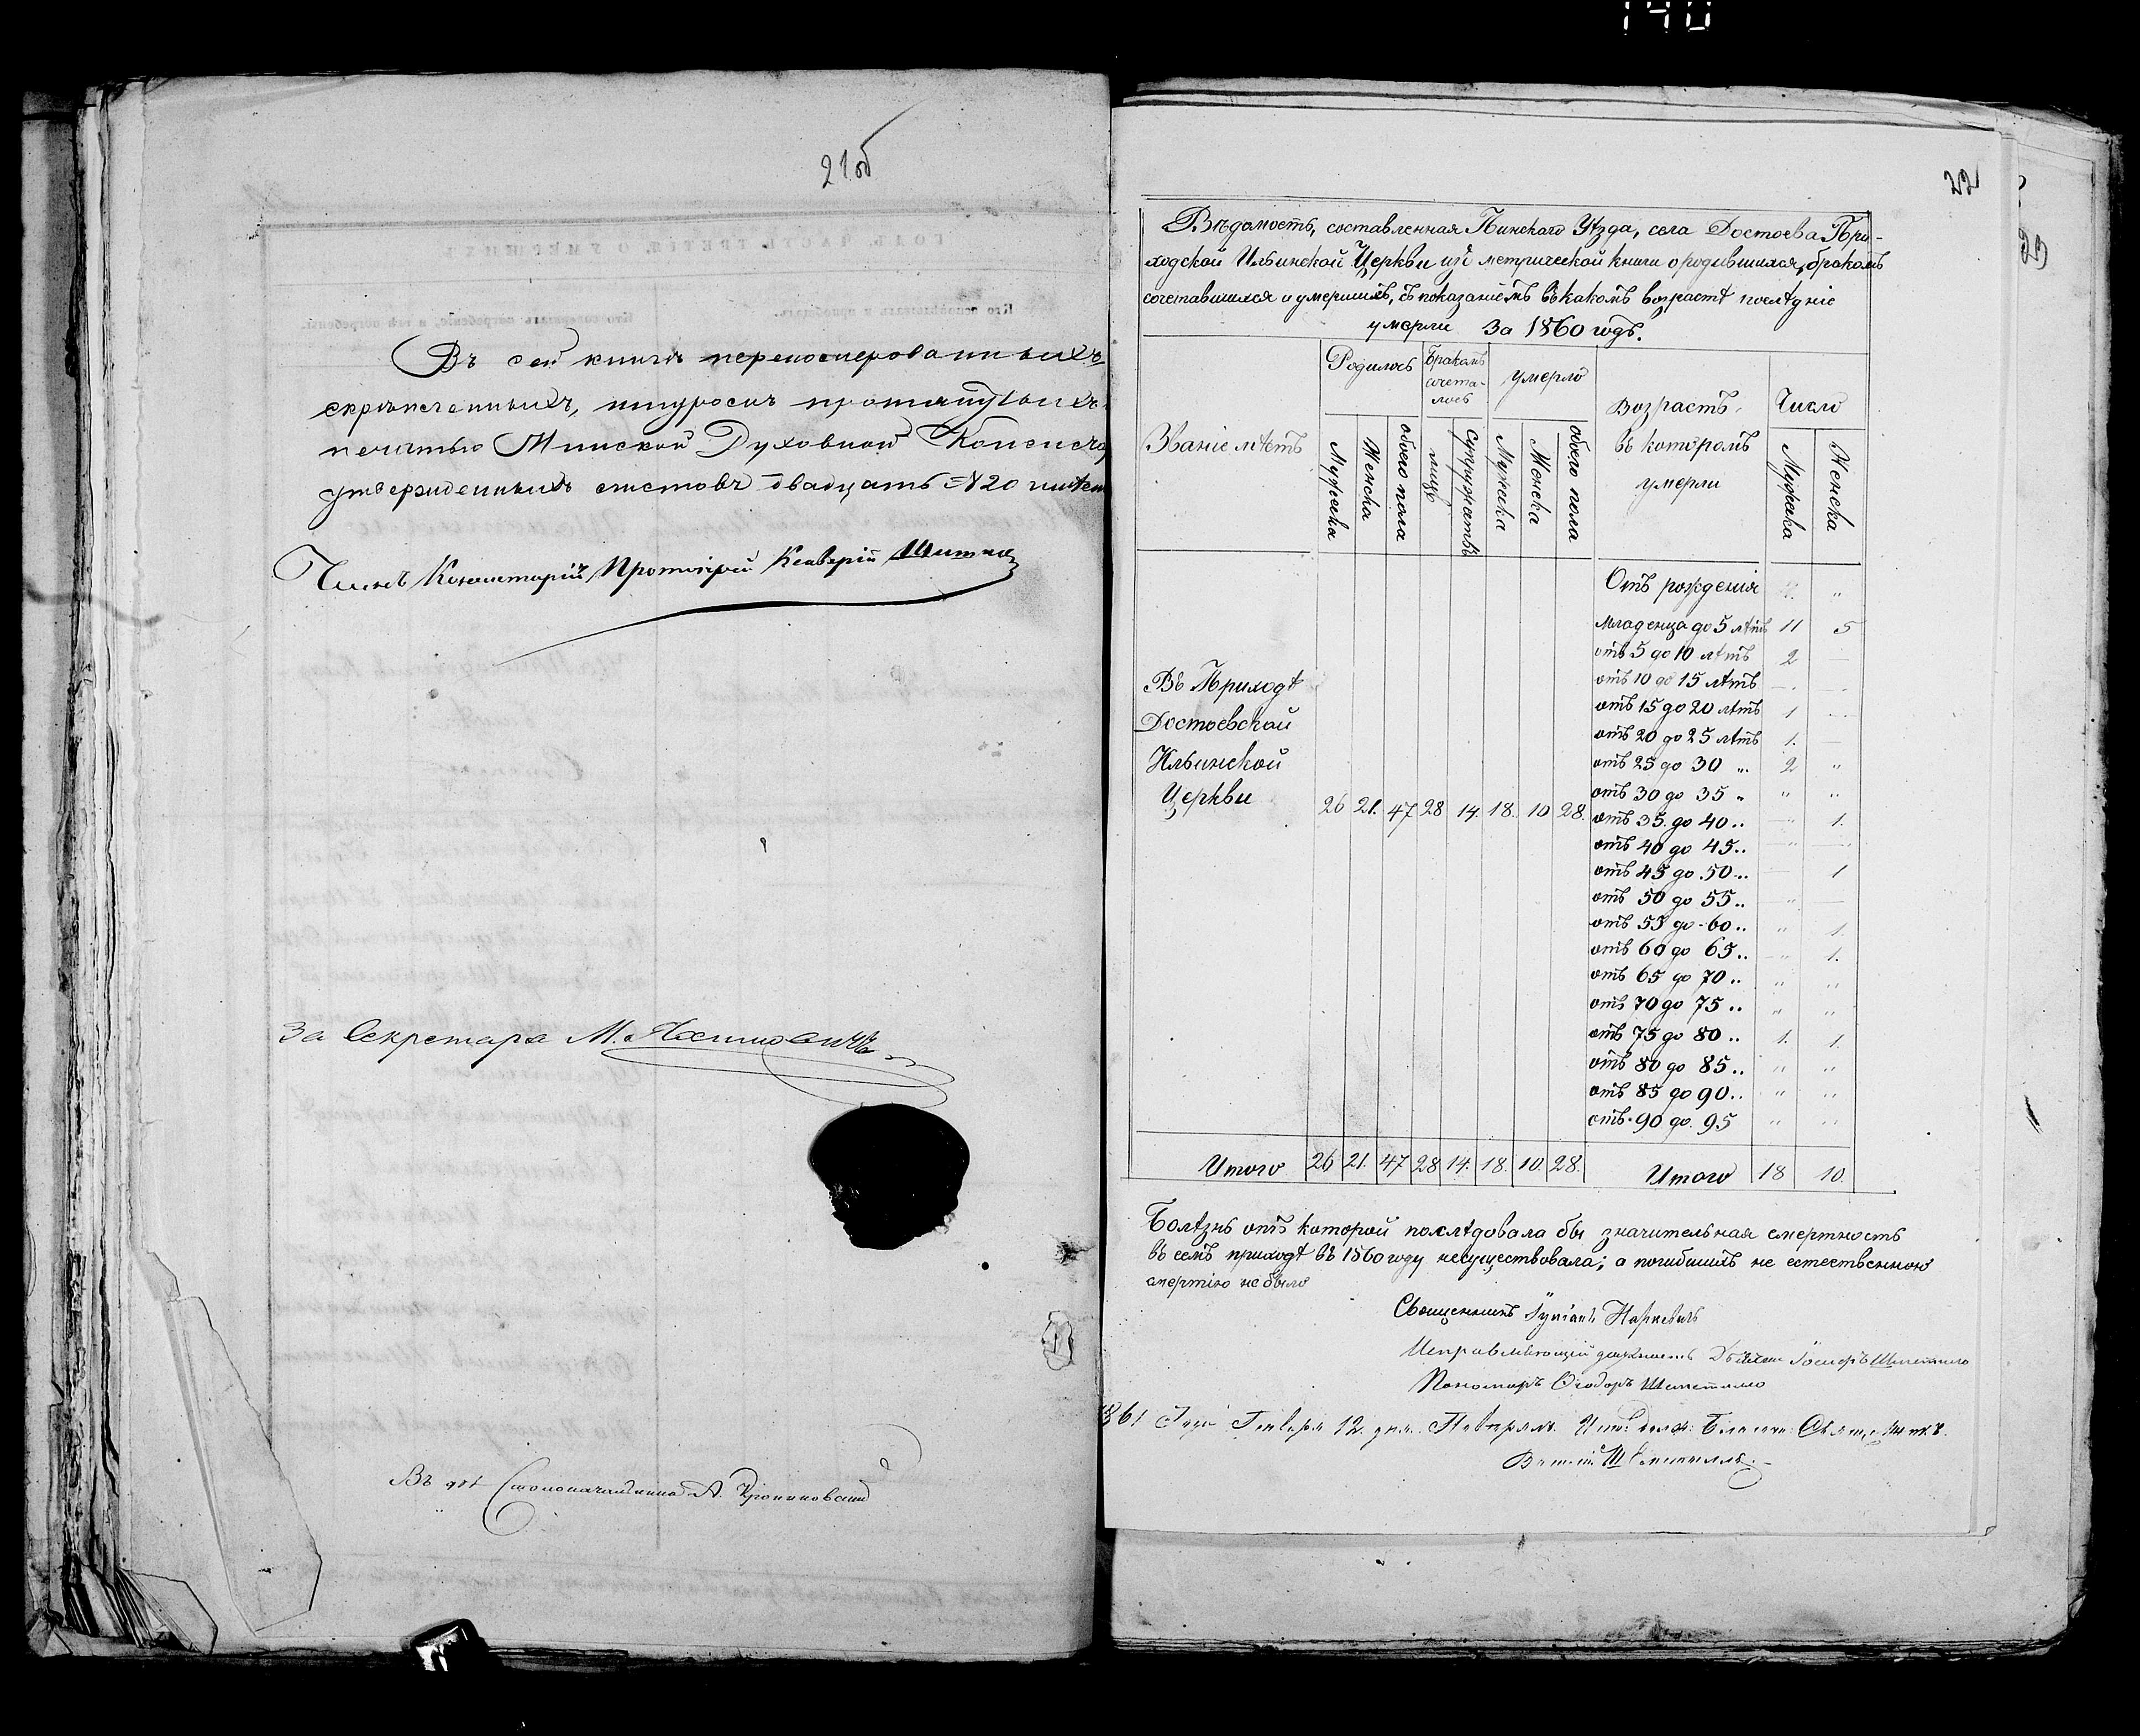 140
21об
Въ сей книгѣ перенумерованныхъ
скрѣпленныхъ, шнуромъ протянутыхъ
печатью Минской Духовной
утвержденныхъ листовъ двадцать N 20
Членъ Консисторіи Протоіерей
За Секретаря М.
Въ дол. Столоначальника А.
22
23
Вѣдомость, составленная Пинскаго Уѣзда, села Достоева При-
ходской Ильинской Церкви изъ метрической книги о родившихся, бракомъ
сочетавшихся и умершихъ, съ показаніемъ въ какомъ возрастѣ послѣдніе
умерли За 1860 годъ.
Званіе мѣстъ
Родилось
Бракомъ сочета-лось
умерло
Возрастъ въ которомъ умерли
Число
Мужска Женска обоего пола лицъ супружествъ Мужска Женска обоего пола Мужска Женска
Отъ рожденія 2. "
младенца до 5 лѣтъ 11 5
отъ 5 до 10 лѣтъ 2 —
отъ 10 до 15 лѣтъ — —
отъ 15 до 20 лѣтъ 1 —
отъ 20 до 25 лѣтъ 1. —
отъ 25 до 30 " 2 "
отъ 30 до 35 " " "
отъ 35 до 40 " " 1.
отъ 40 до 45 " " "
отъ 45 до 50 " — 1
отъ 50 до 55 " " —
отъ 55 до 60 " " 1
отъ 60 до 65 " " 1.
отъ 65 до 70 " " "
отъ 70 до 75 " " "
отъ 75 до 80 " 1. 1.
отъ 80 до 85 " " "
отъ 85 до 90 " " "
отъ 90 до 95 " "
Въ Приходѣ
Достоевской
Ильинской
Церкви 26 21. 47 28 14. 18. 10 28.
Итого 26 21. 47 28 14. 18. 10. 28. Итого 18 10.
Болѣзнь отъ которой послѣдовала бы значительная смертность
въ семъ приходѣ въ 1860 году несуществовала; а погибшихъ не естественною
смертію не было
Священникъ
Исправляющій должность
Пономарь Ѳеодоръ
1861 Года Генваря 12 дня.